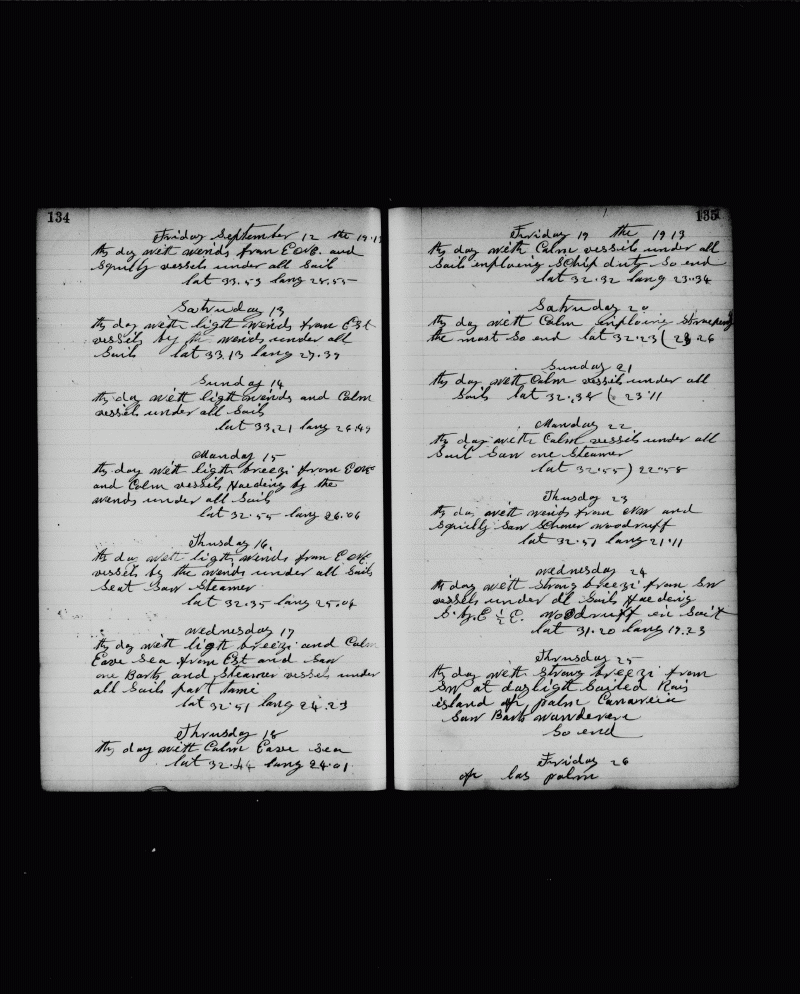 134
Friday September 12 the 1913
ths day wett wends from E ONE. and
Squilly vessels under all Sails
lat 33.53 lang 28.55
Satruday 13
ths day wett ligth wends from Est
vessels by the wends under all
Sails lat 33.13 lang 27.39
Sunday 14
ths day wett ligth wends and Calm
vessels under all Sails
lat 33.21 lang 26.49
Monday 15
ths day wett ligth breezi from E ONE
and Calm vessels Haeding by the
wends under all Sails
lat 32.55 lang 26.06
Thusday 16
ths day wett ligth wends from E ONE
vessels by the wends under all Sails
Seat Saw Steamer
lat 32.35 lang 25.04
wednesday 17
ths day wett ligth breezi and Calm
Eave Sea from Est and Saw
one Bark and Steamer vessels under
all Sails part tame
lat 32.51 lang 24.23
Thrusday 18
ths day with Calm Eave Sea
lat 32.44 lang 24.01
135
Friday 19 the 1913
ths day with Calm vessels under all
Sails enploing Schip duty So end
lat 32.32 lang 23.34
Satruday 20
ths day wett Calm enploing
the mast So end lat 32.23 ( 23 26
Sunday 21
ths day wett Calm vessels under all
Sails lat 32.38 ( 23.11
Monday 22
ths day with Calm vessels under all
Sails Saw one Steamer
lat 32.55 ) 22.58
Thusday 23
ths day wett wends from NW and
Squilly Saw woodruff
lat 32.51 lang 21.11
wednesday 24
ths day wett Strong breezi from SW
vessels under all Sails Haeding
S.by.E ½ E. Woodruff en Sait
lat 31.20 lang 19.23
Thrusday 25
ths day wett Strong breezi from
SW at daylight Saited
island of palm Canareia
Saw Bark wanderer
So end
Friday 26
of las palm